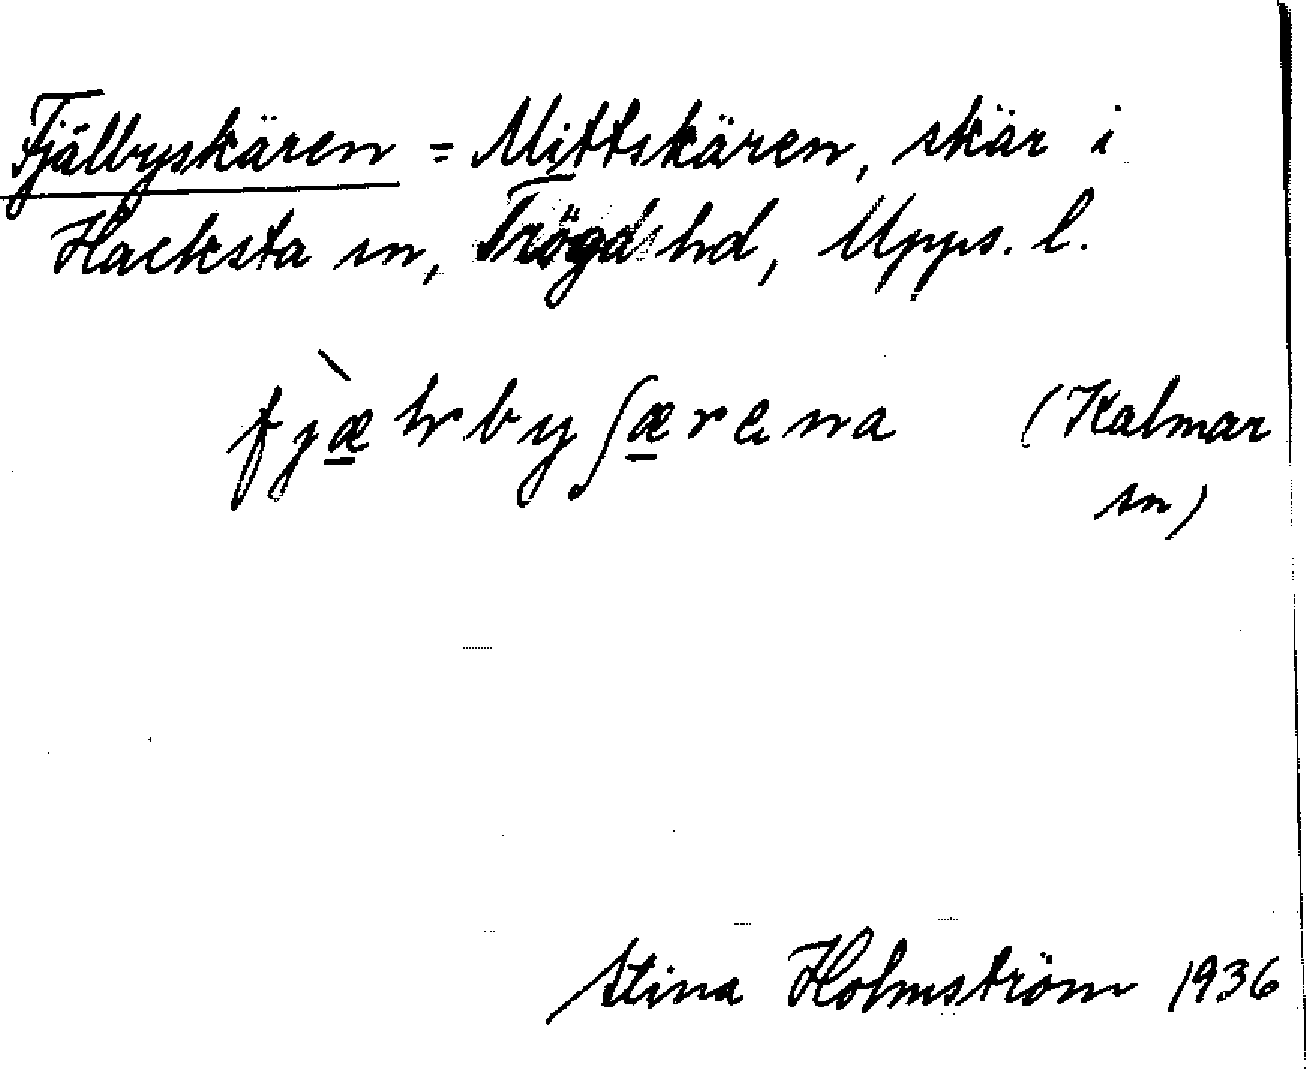 Fjälbyskären = Mittskären, skär i
Hacksta sn, Trögds hd, Upps. l.
(Kalmar
sn)
Stina Holmström 1936